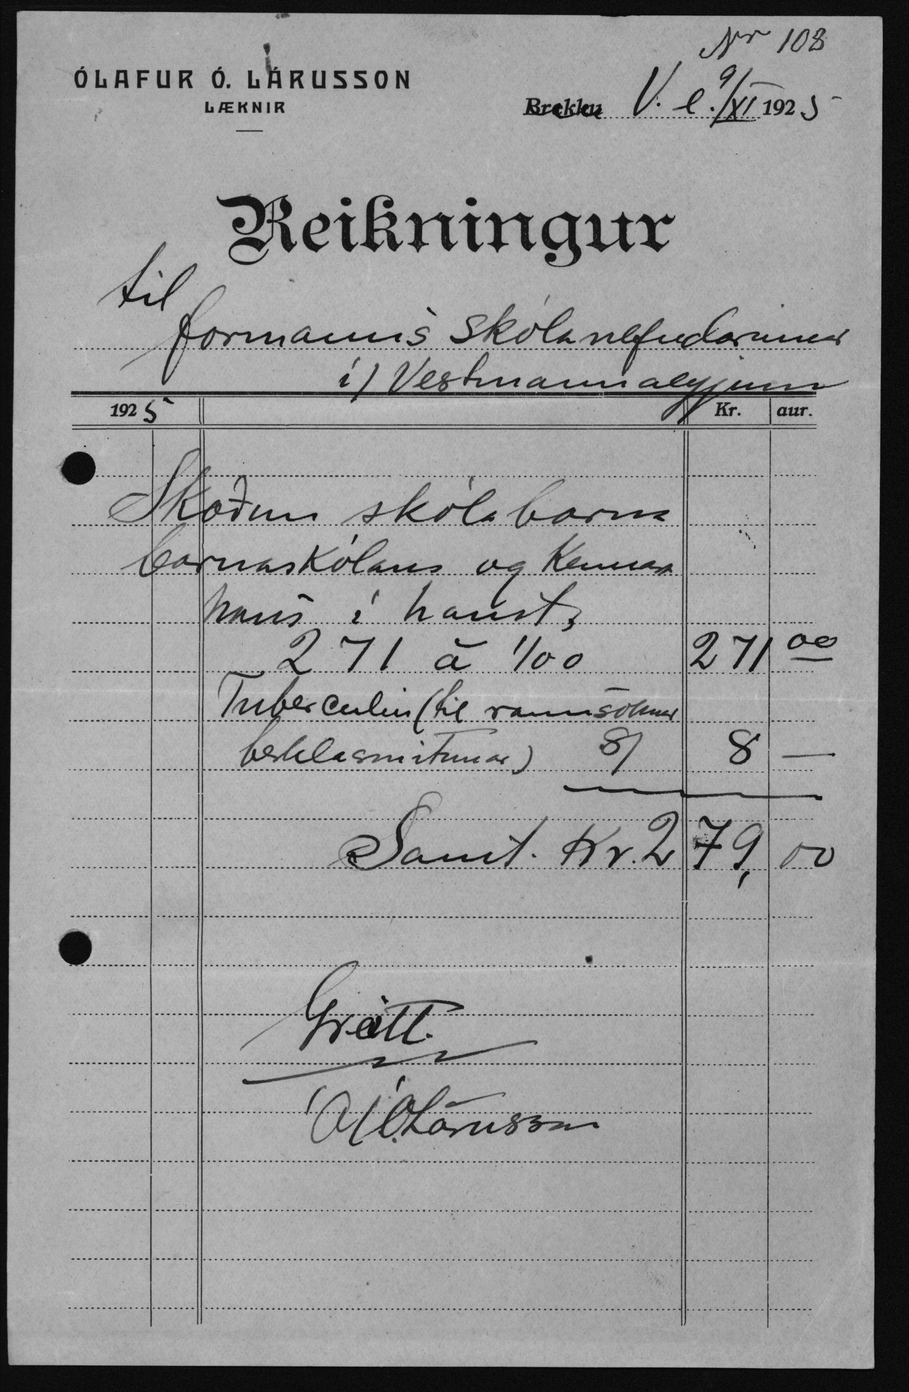 Nr 108
ÓLAFUR Ó. LÁRUSSON
LÆKNIR
Brekku V. e. 9/XI 1925
Reikningur
til
formanns skólanefndarinnar
í/ Vestmannaeyjum
1925 Kr. aur.
Skoðun skólabarna
barnaskólans og kennara
hans í haust,
271 á 1/00 271 00
Tuberculin (til rannsóknar
berklasmitunar) 8/ 8 —
Samt. Kr. 279,00
Greitt.
Ól. Ó. Lárusson